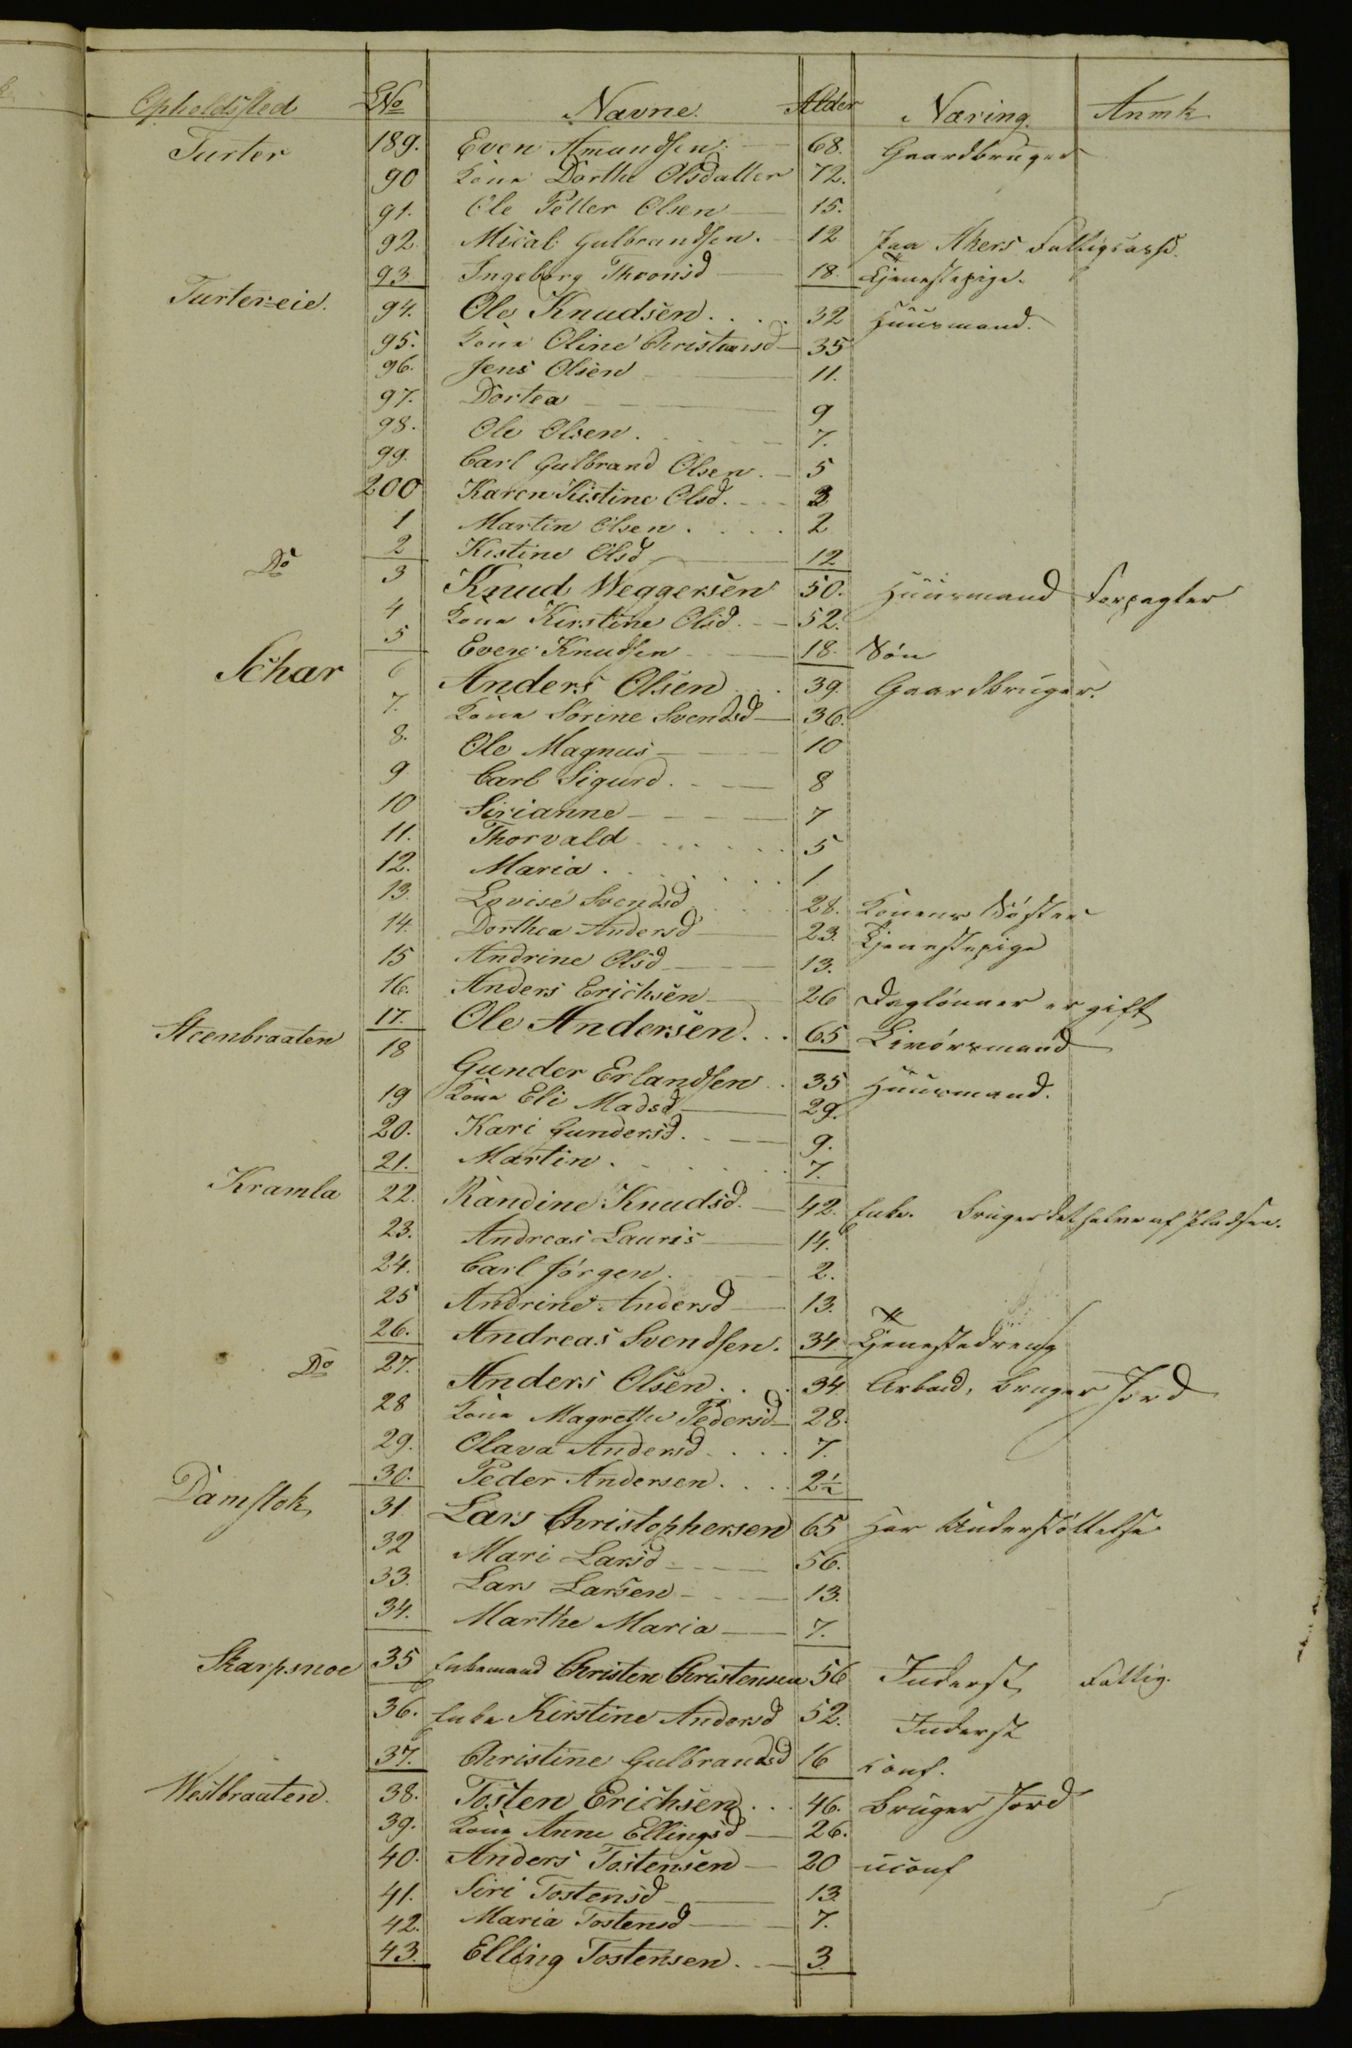 Opholdssted No Navne. Alder Næring. Anmk
Turter 189. Even Amundsen. 68. Gaardbruger
90 Kone Dorthe Olsdatter 72.
91. Ole Petter Olsen 15.
92. Micál Gulbrandsen. 12 paa Akers Fattigcasse.
93. Ingeborg Thronsd 18. Tjenestepige.
Turter-eie. 94. Ole Knudsen. 32 Huusmand.
95. Kone Oline Christiansd 35
96. Jens Olsen 11.
97. Dortea 9
98. Ole Olsen. 7.
99. Carl Gulbrand Olsen. 5
200 Karen Kistine Olsd. 3
1 Martin Olsen. 2
2 Kistine Olsd 12
Do 3 Knud Weggersen 50. Huusmand Forpagter
4 Kone Kirstine Olsd. 52.
5 Even Knudsen 18. Søn
Schar 6 Anders Olsen 39. Gaardbruger.
7. Kone Sørine Svendsd 36.
8. Ole Magnus 10
9 Carl Sigurd. 8
10 Sirianne 7
11. Thorvald 5
12. Maria. 1
13. Lovise Svendsd 28. Konens Søster
14. Dorthea Andersd 23. Tjenestepige
15 Andrine Olsd 13.
16. Anders Erichsen 26 Daglønner er gift
17. Ole Andersen. 65 Livørsmand
Steenbraaten 18 Gunder Erlandsen 35 Huusmand.
19 Kone Eli Madsd 29.
20. Kari Gundersd. 9.
21. Martin. 7.
Kramla 22. Randine Knudsd. 42. Enke. bruger det halve af Pladsen.
23. Andreas Lauris 14.
24. Carl Jørgen. 2.
25 Andrine Andersd 13.
26. Andreas Svendsen. 34 Tjenestedreng
Do 27. Anders Olsen. 34 Arbeid, bruger Jord
28 Kone Magrethe Pedersd 28.
29. Olava Andersd 7.
30. Peder Andersen. 2½
Damstok 31. Lars Christophersen 65 Har Understøttelse
32 Mari Larsd 56.
33. Lars Larsen 13.
34. Marthe Maria 7.
Skarpsnoe 35 Enkemand Christen Christensen 56 Inderst Fattig.
36. Enke Kirstine Andersd 52. Inderst
37. Christine Gulbrandsd 16 Conf.
Westbraaten. 38. Tosten Erichsen 46. bruger Jord
39. Kone Anne Ellingsd 26.
40. Anders Tostensen 20 uconf
41. Siri Tostensd 13
42. Maria Tostensd 7.
43. Elling Tostensen. 3